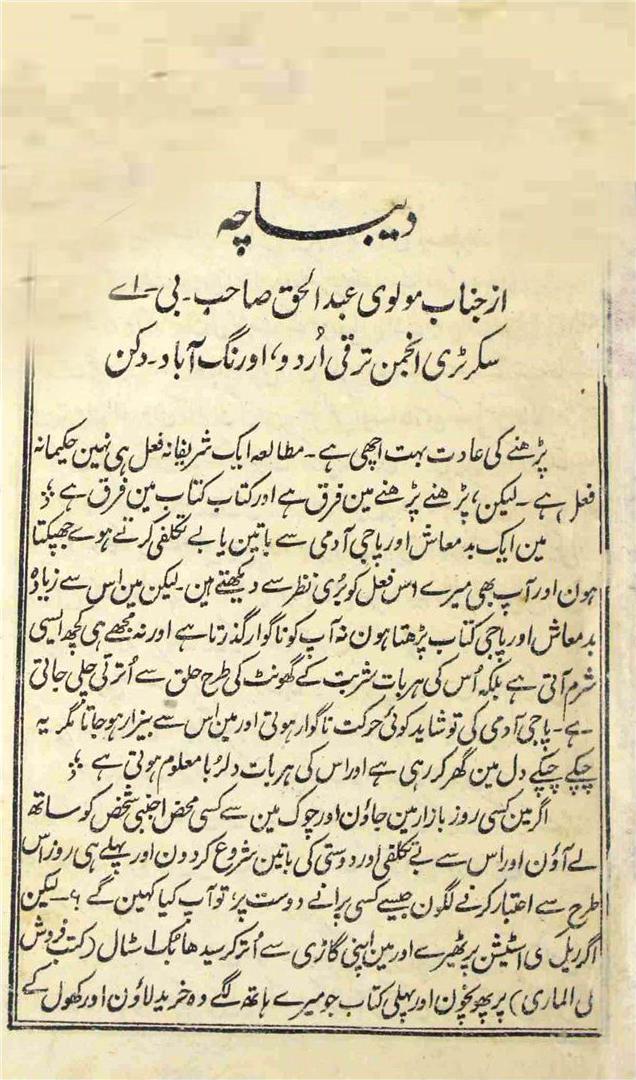 دیباچہ
از جناب مولوی عبدالحق صاحب ۔ بی ۔ اے
سکرٹری انجمن ترقی اُردو، اورنگ آباد ۔ دکن
پڑھنے کی عادت بہت اچھی ہے ۔ مطالعہ ایک شریفانہ فعل ہی نہین حکیمانہ
فعل ہے ۔ لیکن، پڑھنے پڑھنے مین فرق ہے اور کتاب کتاب مین فرق ہے ؛
مین ایک بدمعاش اور پاجی آدمی سے باتین یا بے تکلفی کرتے ہوے جھپکتا
ہون اور آپ بھی میرے اس فعل کو بُری نظر سے دیکھتے ہین ۔ لیکن مین اس سے زیادہ
بدمعاش اور پاجی کتاب پڑھتا ہون نہ آپ کو ناگوار گذرتا ہے اور نہ مجھے ہی کچھ ایسی
شرم آتی ہے بلکہ اُس کی ہر بات شربت کے گھونٹ کی طرح حلق سے اُترتی چلی جاتی
ہے ۔ پاجی آدمی کی تو شاید کوئی حرکت ناگوار ہوتی اور مین اس سے بیزار ہوجاتا مگر یہ
چپکے چپکے دل مین گھر کر رہی ہے اور اس کی ہر بات دلرُبا معلوم ہوتی ہے ؛
اگر مین کسی روز بازار مین جاؤن اور چوک مین سے کسی محض اجنبی شخص کو ساتھ
لے آؤن اور اس سے بے تکلفی اور دوستی کی باتین شروع کردون اور پہلے ہی روز اس
طرح سے اعتبار کرنے لگون جیسے کسی پرانے دوست پر، تو آپ کیا کہین گے ؟ ۔ لیکن
اگر ریل کسی اسٹیشن پر ٹھیرے اور مین اپنی گاڑی سے اُتر کر سیدھا بک اسٹال (کتب فروش
کی الماری) پر پھونچون اور پہلی کتاب جو میرے ہاتھ لگے وہ خرید لاؤن اور کھول کے